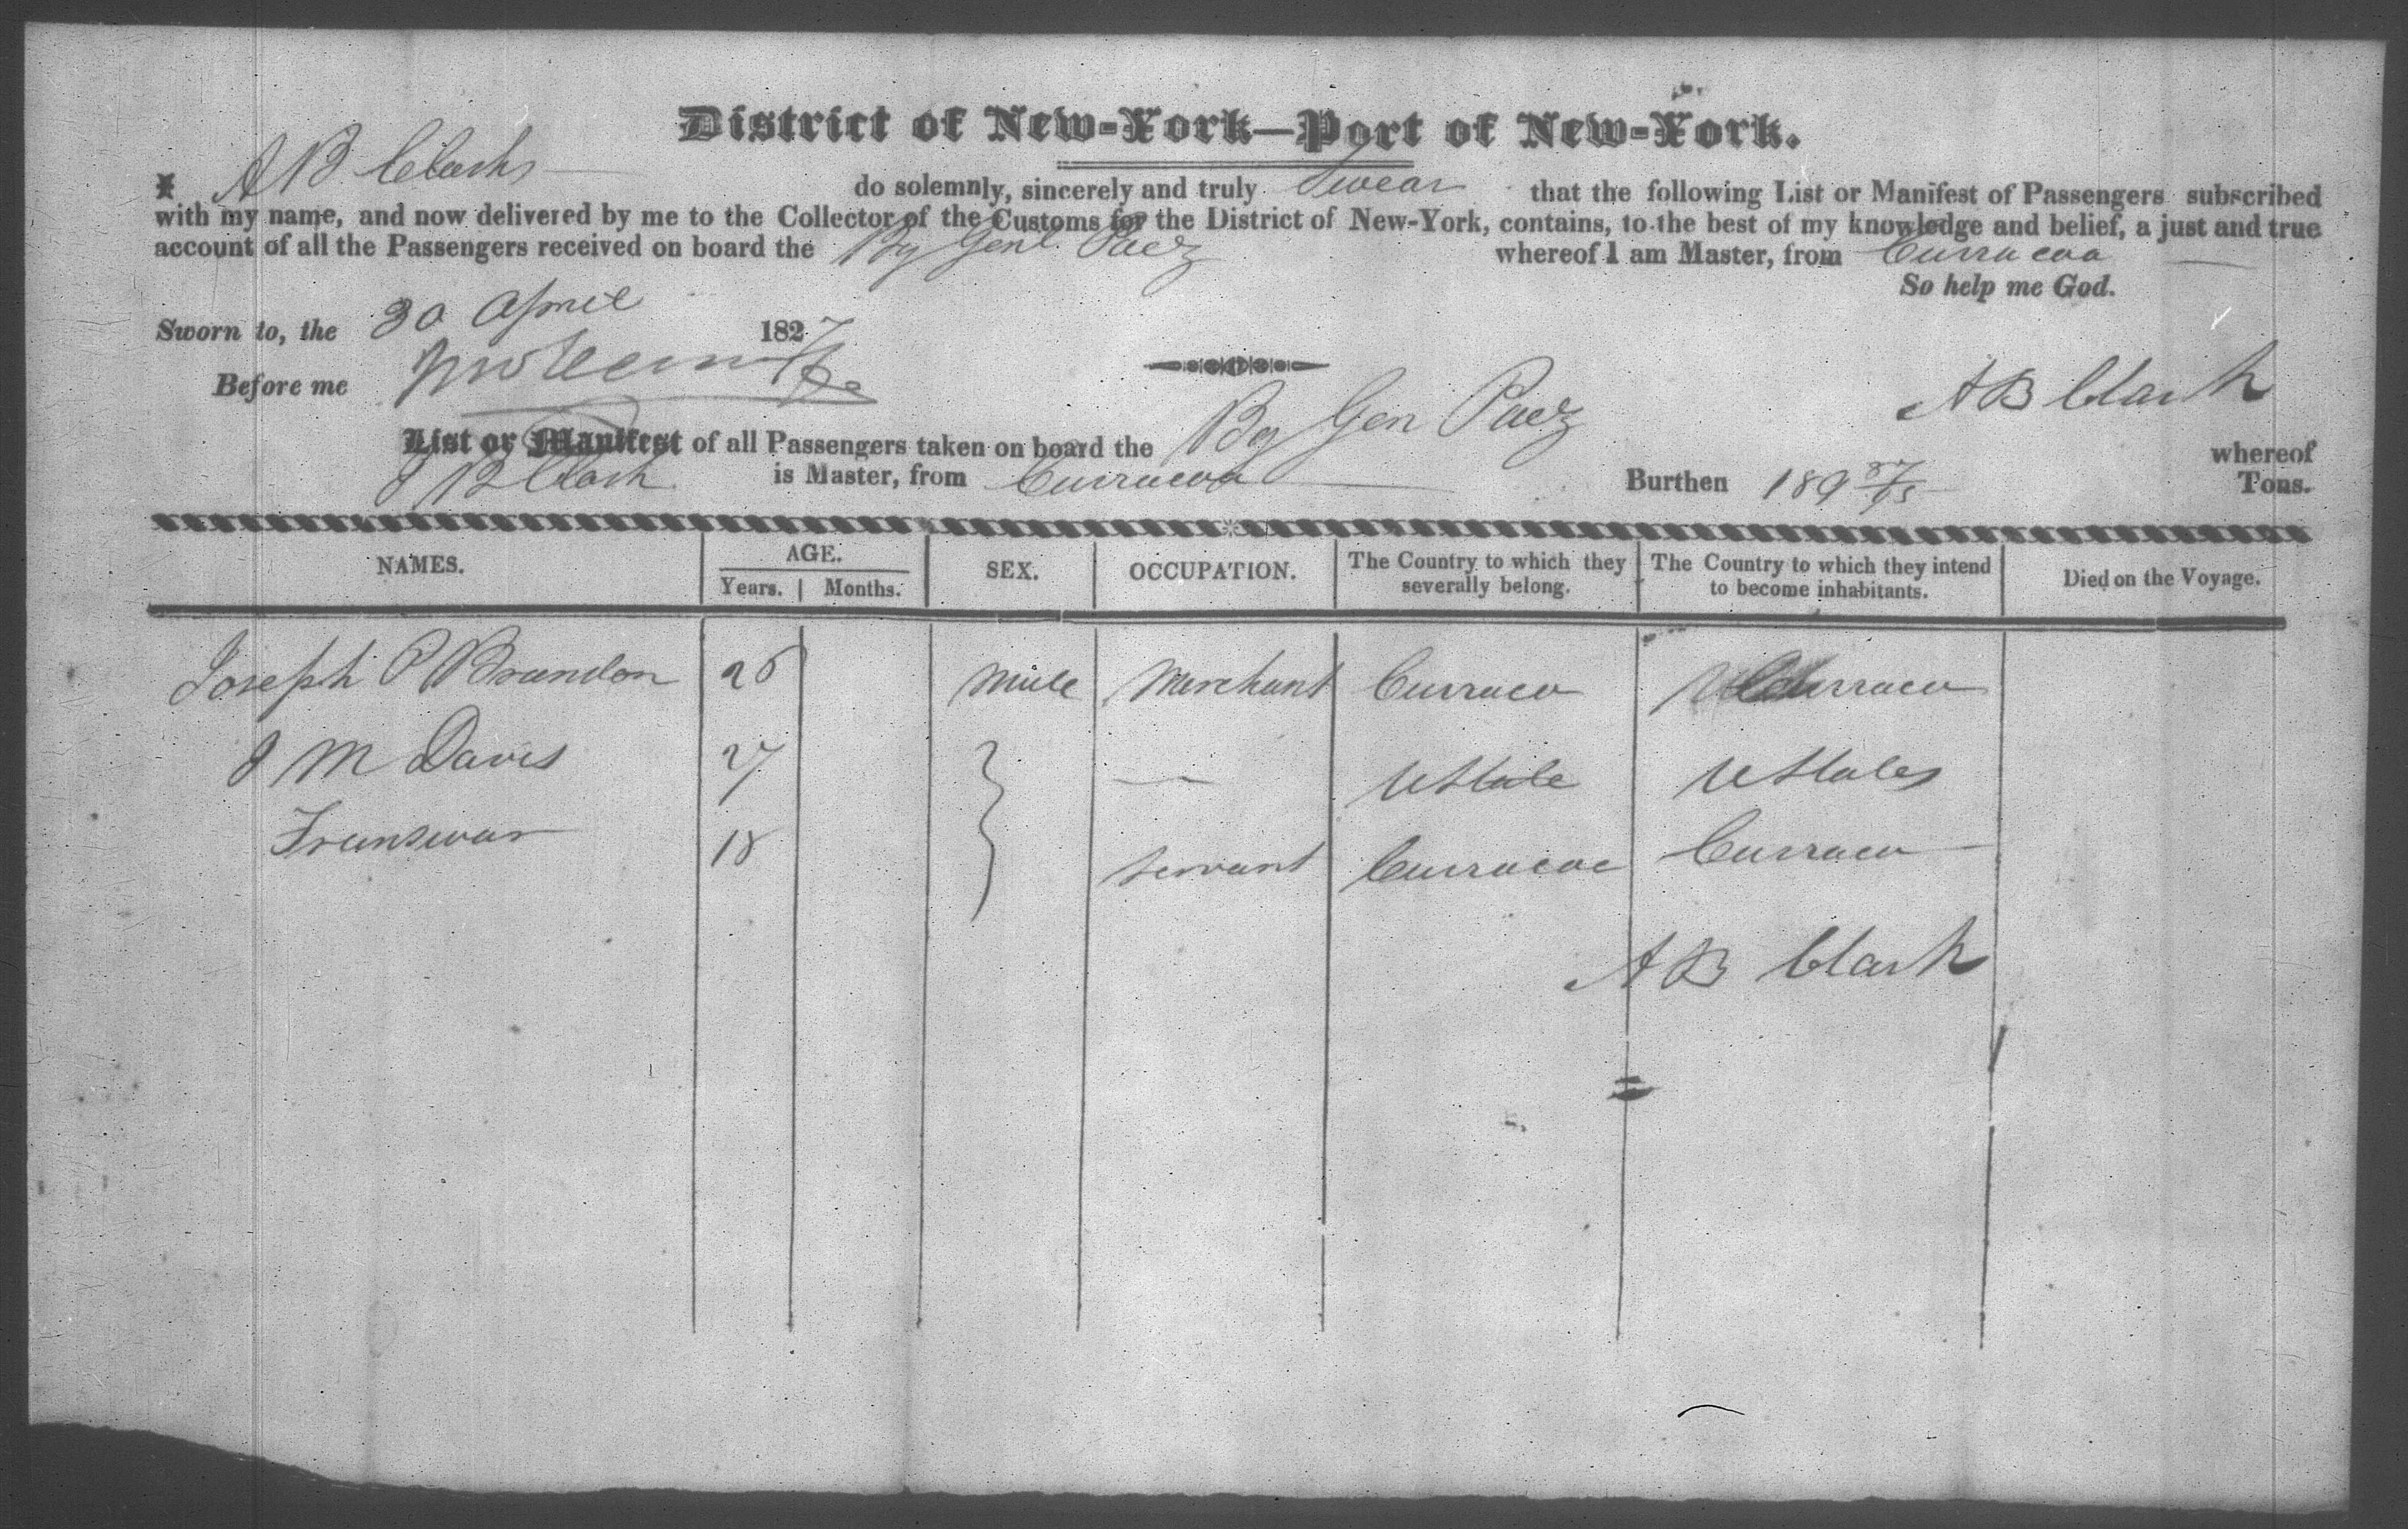 District of New-York—Port of New-York.
I A B Clark do solemnly, sincerely and truly Swear that the following List or Manifest of Passengers subscribed
with my name, and now delivered by me to the Collector of the Customs for the District of New-York, contains, to the best of my knowledge and belief, a just and true
account of all the Passengers received on board the Brg Genl. Paez whereof I am Master, from Curracoa
So help me God.
Sworn to, the 30 April 1827
Before me
A B Clark
List or Manifest of all Passengers taken on board the Brg Gen Paez whereof
B Clark is Master, from Curracoa Burthen 189 87/95 Tons.
NAMES. AGE. SEX. OCCUPATION. The Country to which they severally belong. The Country to which they intend to become inhabitants. Died on the Voyage.
Years. Months.
Joseph P Brandon 26 Male Merchant Curraco Curraco
J M Davis 27 — UState UStates
Franswar 18 Servant Curracoa Curraco
A B Clark